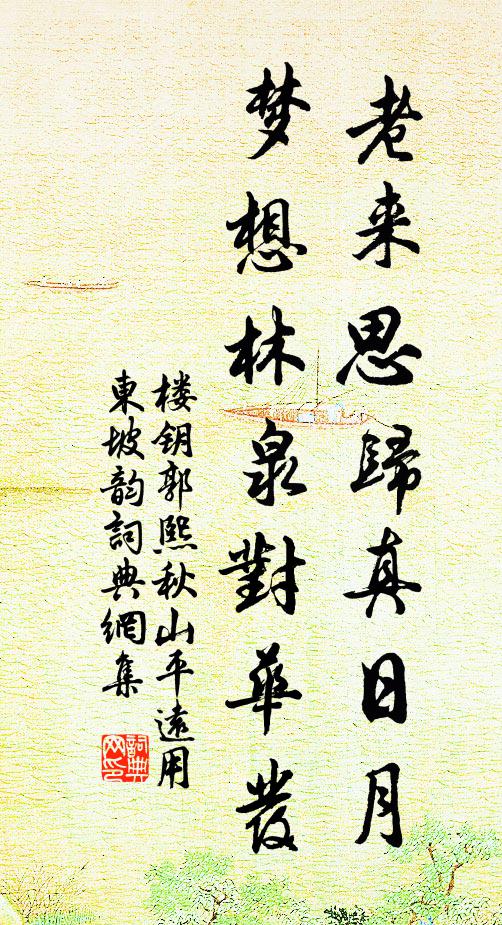 老来思歸真日月
梦想林泉對華發
楼钥郭熙秋山平遠用
東坡韵詞典網集
詞典
网印